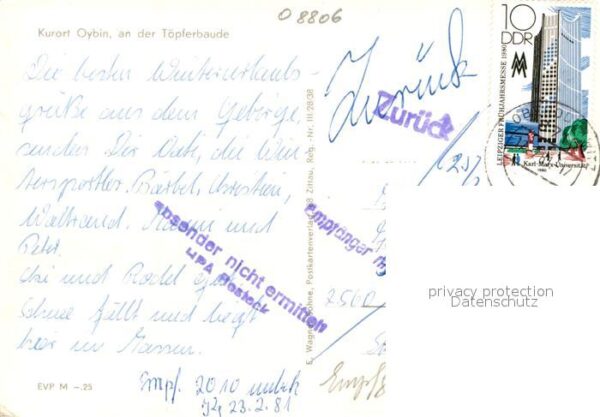 O 8806
Kurort Oybin, an der Töpferbaude
Die besten Winterurlaubs-
grüße aus dem Gebirge,
senden Dir Vati, die Win
tersportler Bärbel, Christian,
Waltraud, und
Petr.
Ski und Rodel gut
Schnee fällt und liegt
hier in Massen.
EVP M –.25
E. Wagner Söhne, Postkartenverlag, 88 Zittau, Reg.-Nr. III/28/38
Zurück
Zurück
Empfänger
Absender nicht ermittelt
HPA Rostock
2560
Empf
Empf. 2010 unbek
23.2.81
10
DDR
MM
LEIPZIGER FRÜHJAHRSMESSE 1980
Karl-Marx-Universität
1980
privacy protection
Datenschutz